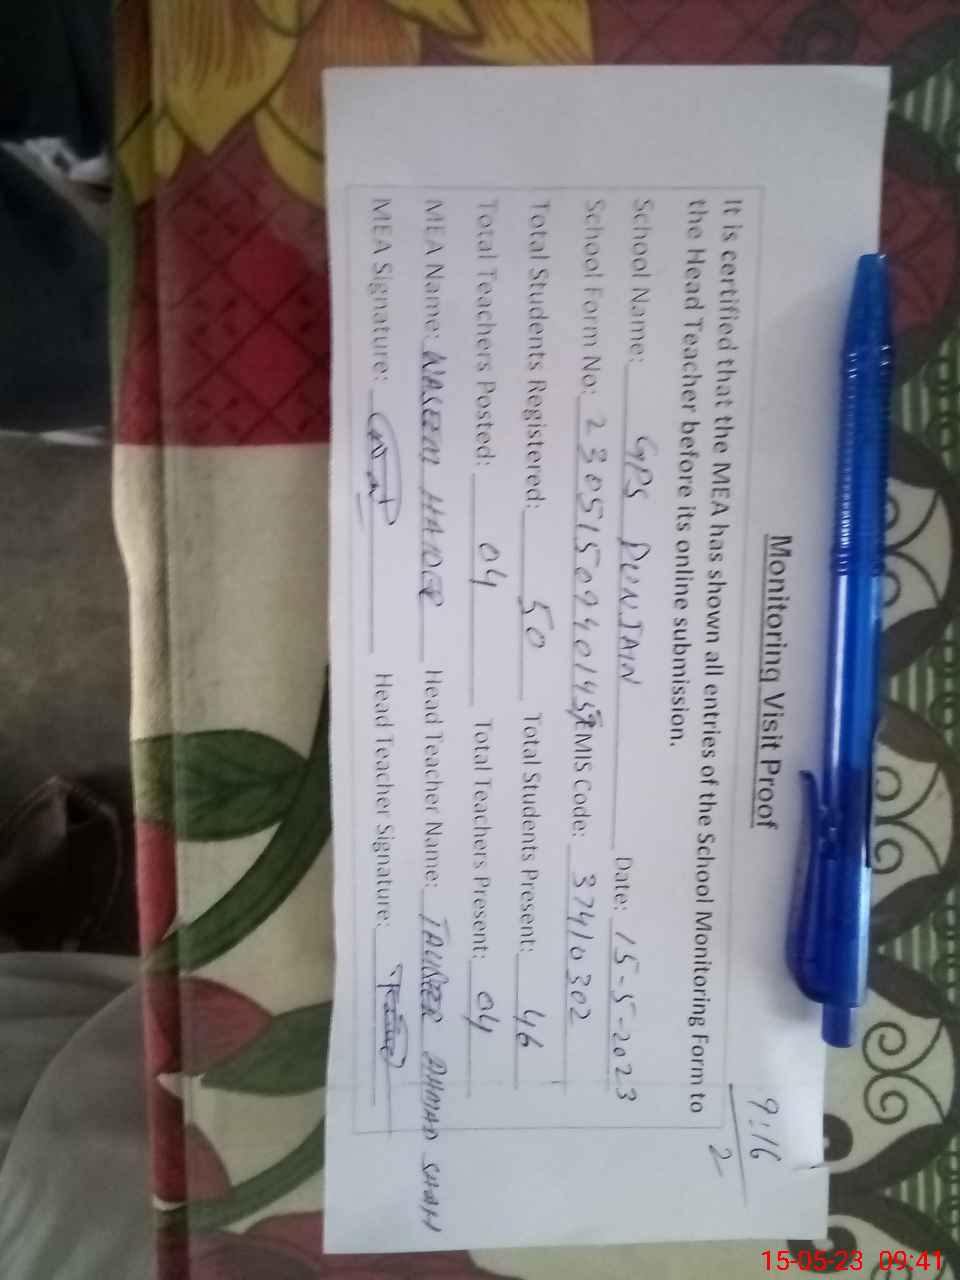 9:16
2
Monitoring Visit Proof
It is certified that the MEA has shown all entries of the School Monitoring Form to
the Head Teacher before its online submission.
School Name: GPS DUNIAN Date: 15-5-2023
School Form No: EMIS Code: 37410302
Total Students Registered: 50 Total Students Present: 46
Total Teachers Posted: 04 Total Teachers Present: 04
MEA Name: WASEEM HAIDER Head Teacher Name: AHMAD SHAH
MEA Signature: Head Teacher Signature:
15-05-23 09:41